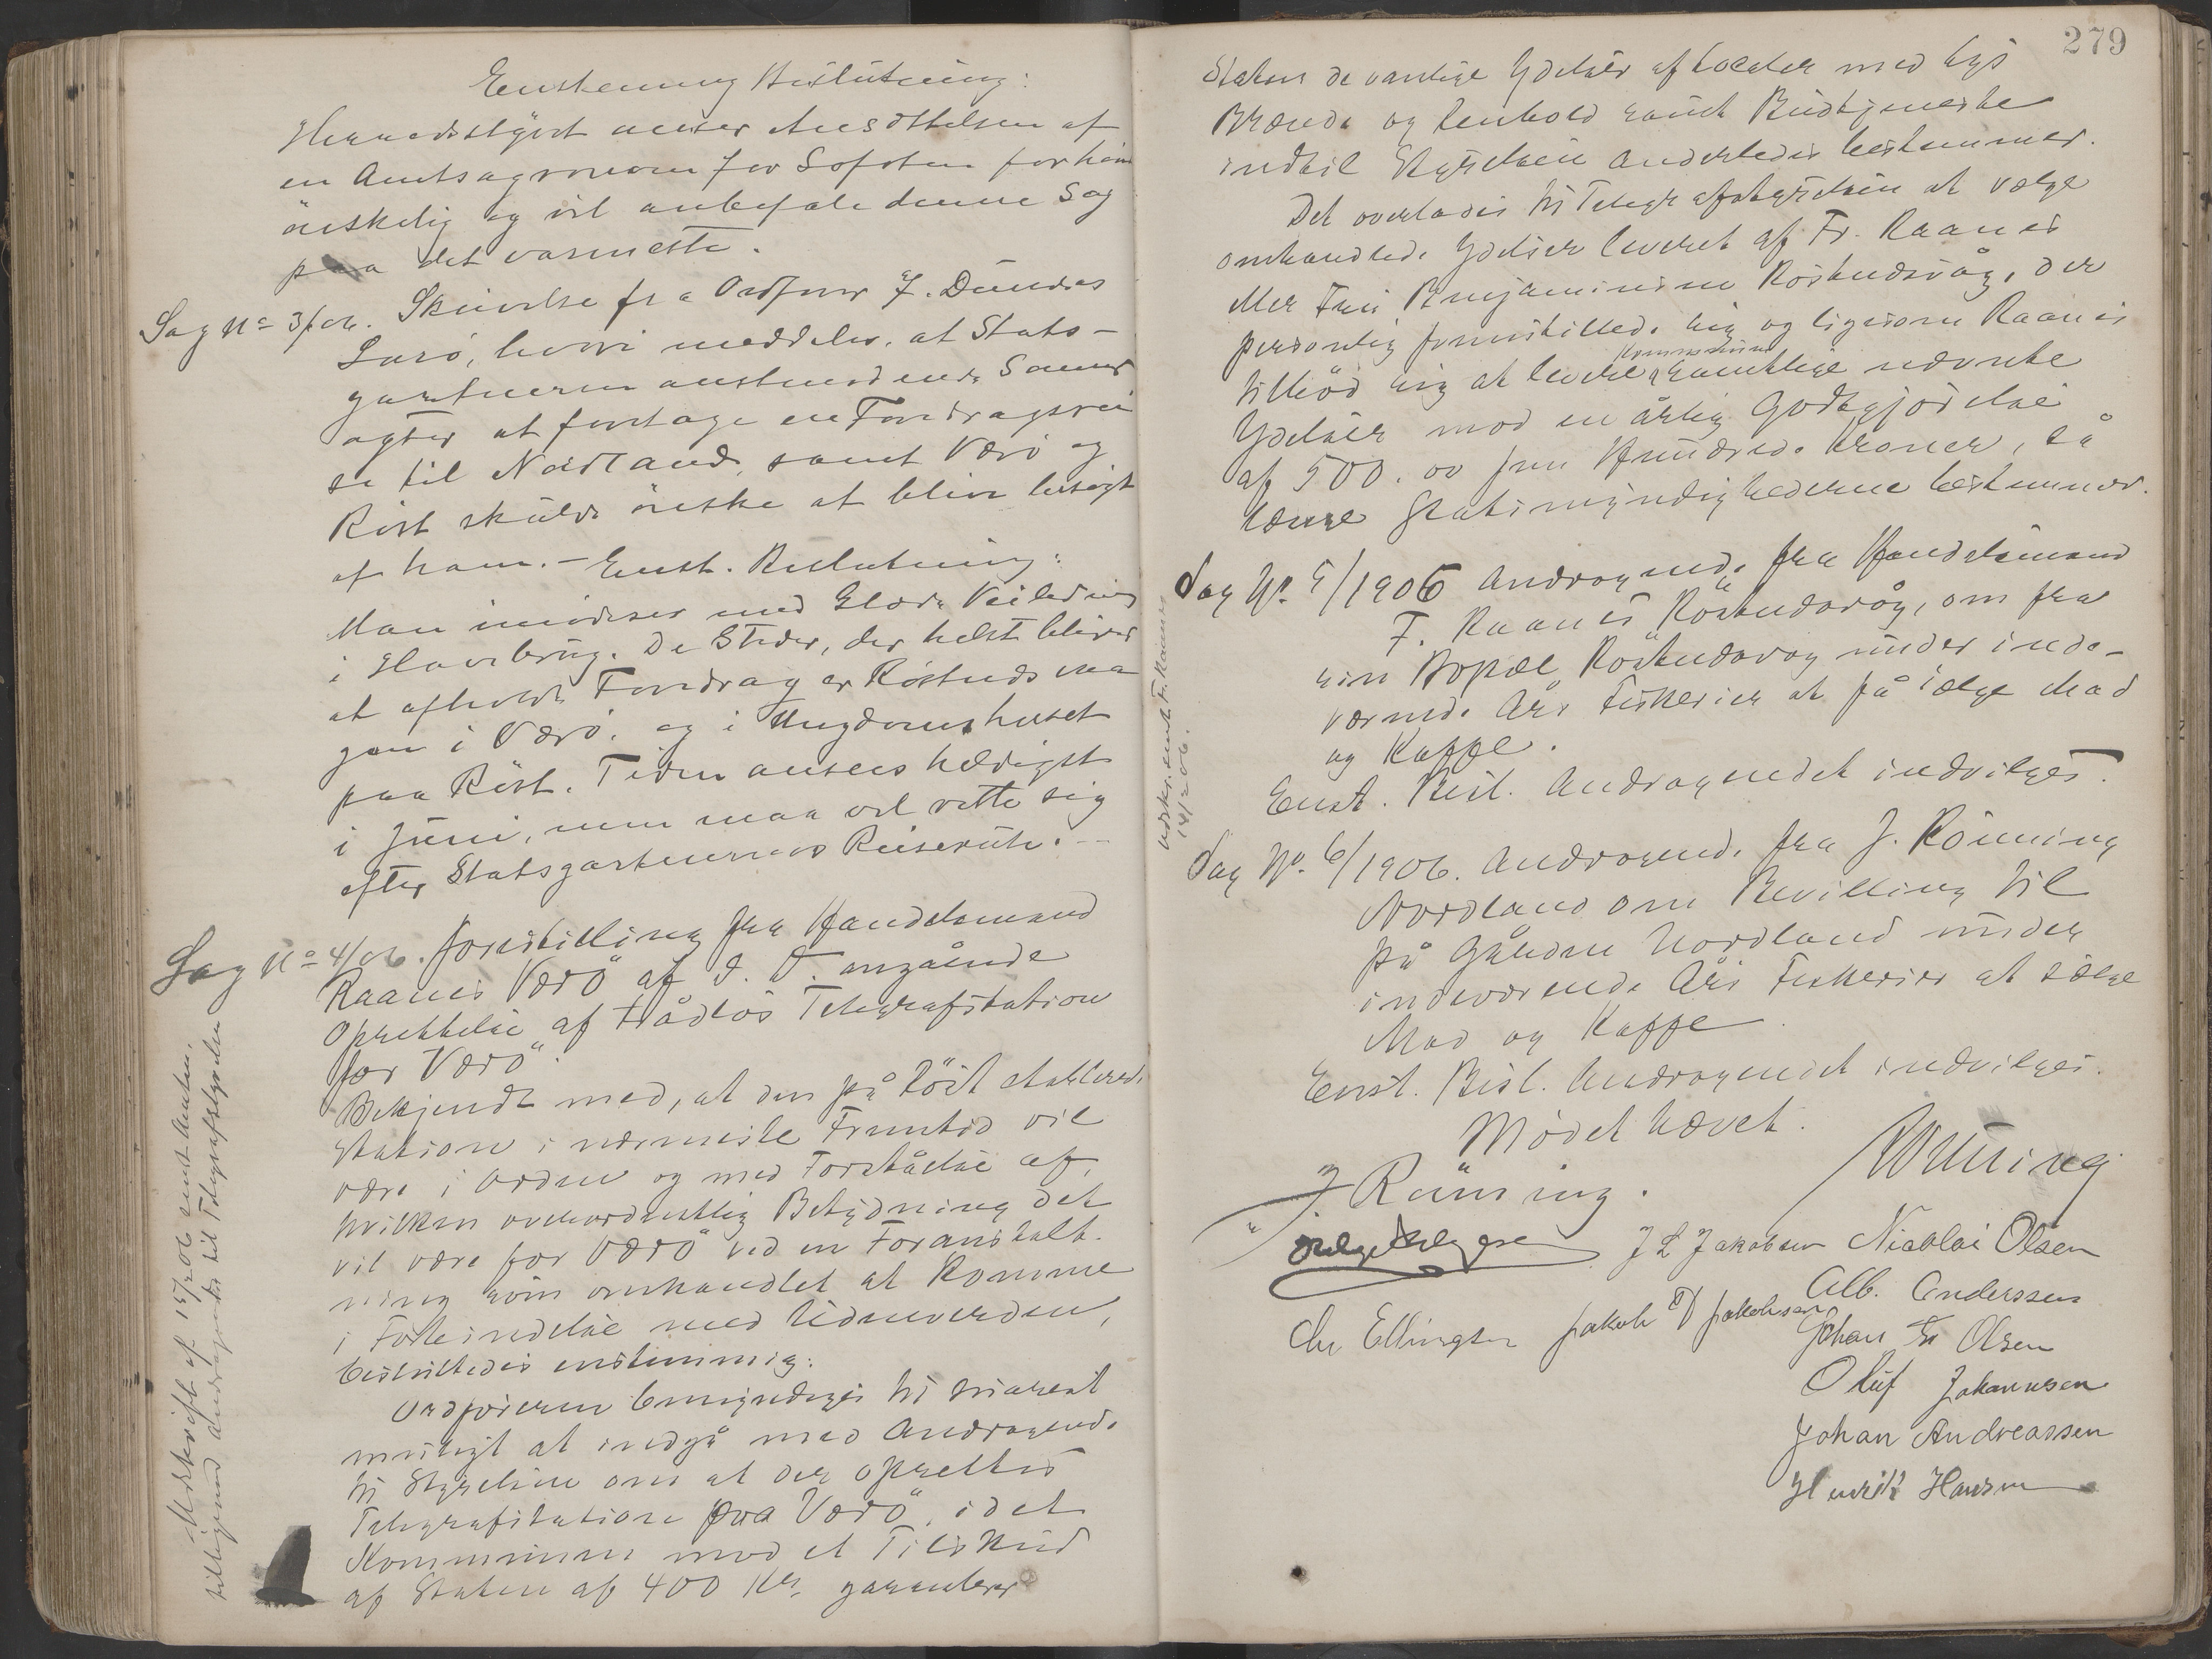 Enstemmig Beslutning:
Herredsstyret anser Ansættelsen af
en Amtsagronom for Lofoten for
ønskelig og vil anbefale denne Sag
paa det varmeste.
Sag No 3/06. Skrivelse fra Ordfører J. Dünäs
hvori meddeles, at Stats-
gartneren
agter at foretage en Foredragsrei
se til Nordland, samt Værö og
Röst skulde ønske at blive besøgt
af ham. - Enst. Beslutning:
Man imødeser med Glæde Veiledning
i Havebrug. De Steder, der helst bliver
at afholde Foredrag er Röstnesvaa
gen i Værö, og i Ungdomshuset
paa Röst. Tiden ansees heldigst
i Juni, men maa vel rette sig
efter Statsgartnerens Reiserute. -
Sag No 4/06. Forestilling fra Handelsmand
Raanes Værö af d. D. angående
Oprettelse af trådlös Telegrafstation
for Værö.
Bekjendt med, at den på Röst etablerede
Station i nærmeste Fremtid vil
være i Orden og med Forståelse af,
hvilken overordentlig Betydning det
vil være for Værö ved en Foranstalt-
ning som omhandlet at komme
i Forbindelse med Udenverden,
besluttedes enstemmig:
Ordføreren bemyndiges til snarest
muligt at indgå med Andragende
til Styrelsen om at der oprettes
Telegrafstation paa Værö, idet
Kommunen mod et Tilskud
af Staten af 400 Kr. garanterer
Udskrift af 15/2 06 sendt Amtet,
tilligemed andragende til Telegrafstyrelsen
279
Staten de vanlige Ydelser af Localer med Lys
Brænde og Renhold samt Budtjeneste
indtil Styrelsen anderledes bestemmer.
Det overlades til Telegrafstyrelsen at vælge
omhandlede Ydelser leveret af Fr. Raanes
eller Fru Benjaminsen Röstnesvåg, der
personlig fremstillede sig og ligesom Raanes
tilböd sig at levere Kommunen samtlige nævnte
Ydelser mod en årlig Godtgjörelse
af 500.00 fem Hundrede Kroner, så
længe Statsmyndighederne bestemmer.
Sag No. 5/1906 Andragende fra Handelsmand
F. Raanes Röstnesvåg, om fra
sin Bopæl Röstnesvåg under inde-
værende Års Fiskerier at få sælge Mad
og Kaffe.
Enst. Besl. Andragendet indvilges.
Udskr. sendt Fr. Raanes
14/2 06.
Sag No. 6/1906. Andragende fra J. Rönning
Nordland om Bevilling til
på Gården Nordland under
indeværende Års Fiskerier at sælge
Mad og Kaffe.
Enst. Besl. Andragendet indvilges.
Mødet hævet.
J. Rönning.
Helge Helgesen J L Jakobsen Nicolai Olsen
Alb. Anderssen
Chr Ellingsen Jakob D Jakobsen
Johan Fr Olsen
Oluf Johannesen
Johan Andreassen
Henrik Hansen